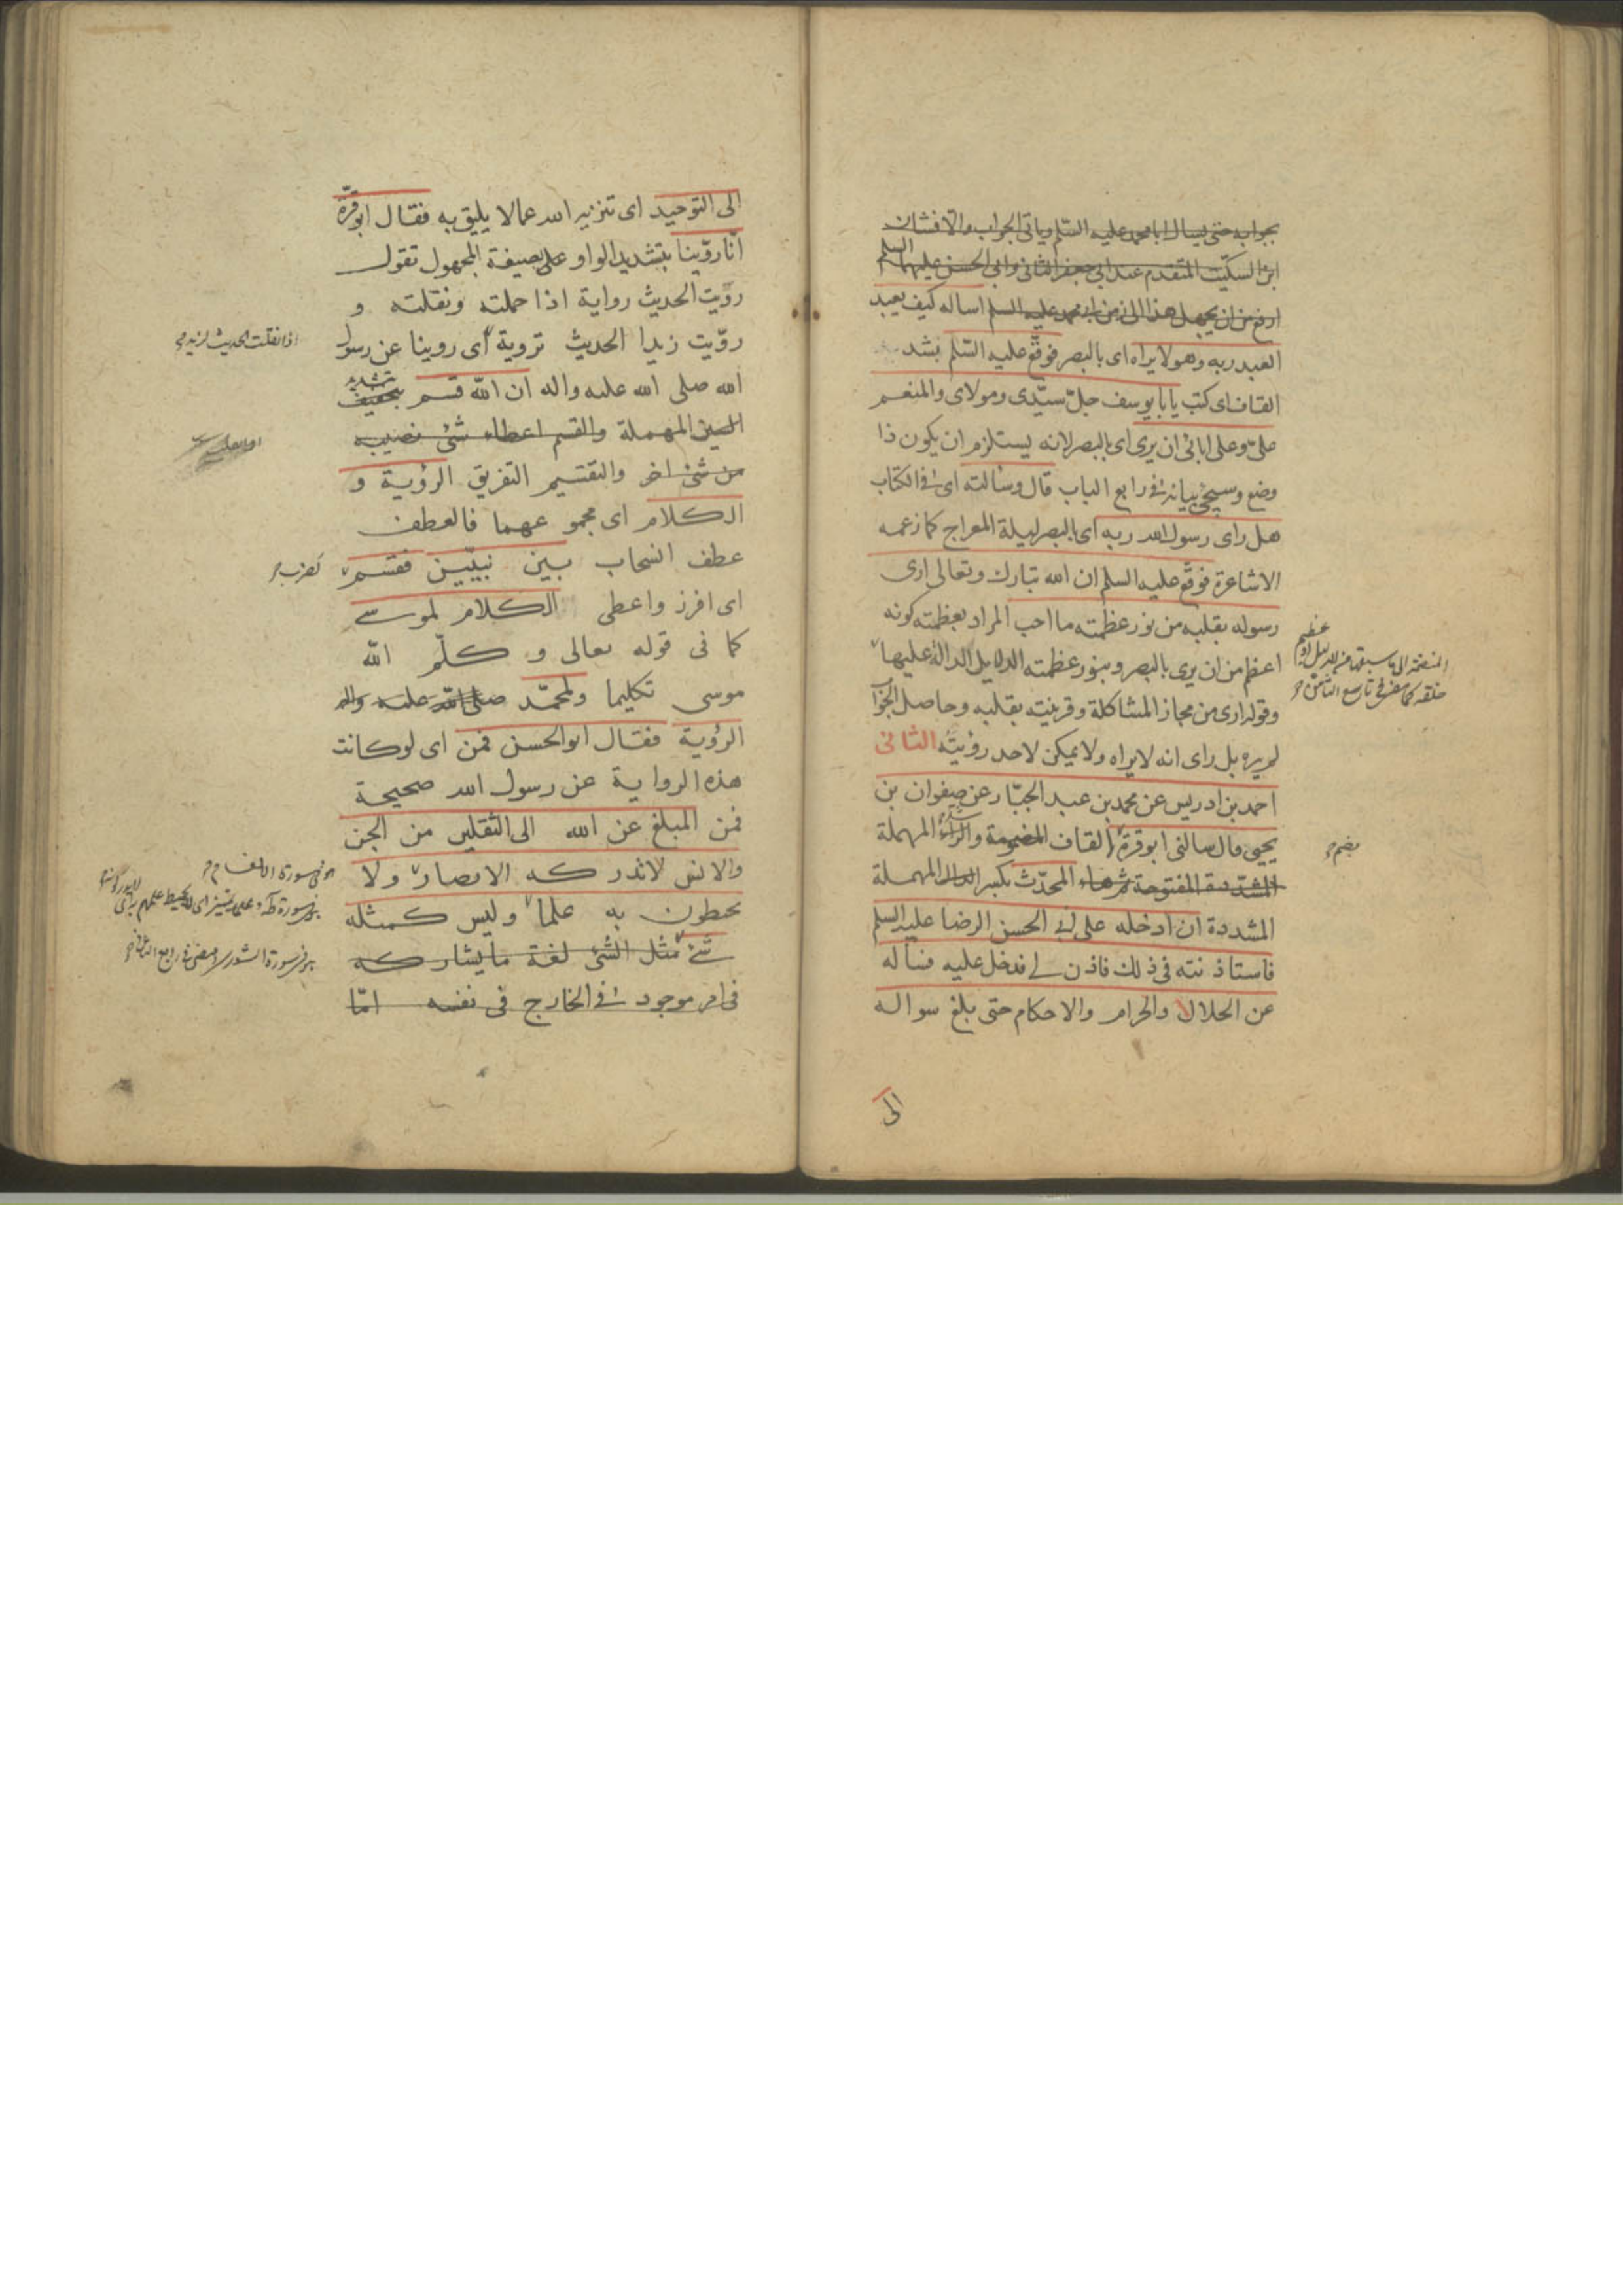 بجوابه حتى يسال ابا محمد عليه السلم وياتى الجواب والافشان
ابن السكيت المتقدم عند ابي جعفر الثانى وابي الحسن عليهما السلم
ارفع من ان يجهل هذا الى زمن ابي محمد عليه السلم اساله كيف يعبد
العبد ربه وهو لا يراه اى بالبصر فوقّع عليه السّلم بشد
القاف اى كتب يا با يوسف جلّ سيّدى ومولاى والمنعم
علىّ وعلى ابائى ان يرى اى بالبصر لانه يستلزم ان يكون ذا
وضع وسيجئ بيانه فى رابع الباب قال وسالته اى فى الكتاب
هل راى رسول الله ربه اى بالبصر ليلة المعراج كما زعمه
الاشاعرة فوقّع عليه السلم ان الله تبارك وتعالى ارى
رسوله بقلبه من نور عظمته ما احب المراد بعظمته كونه
اعظم من ان يرى بالبصر وبنور عظمته الدلايل الدالة عليها
وقوله ارى من مجاز المشاكلة وقرينته بقلبه وحاصل الجواب
لم يره بل راى انه لا يراه ولا يمكن لاحد رؤيته الثانى
احمد بن ادريس عن محمد بن عبد الجبّار عن صفوان بن
يحيى قال سالنى ابو قرة القاف المضمومة والراء المهملة
المشددة المفتوحة ثم هاء المحدّث بكسر الدال المهملة
المشددة ان ادخله على ابى الحسن الرضا عليه السلم
فاستاذنته فى ذلك فاذن لى فدخل عليه فساله
عن الحلال والحرام والاحكام حتى بلغ سواله
الى
خلقه كما مضى فى تاسع الثامن
بضم
الى التوحيد اى تنزيه الله عما لا يليق به فقال ابو قرّة
انّا روّينا بتشديد الواو على صيغة المجهول تقول
رويت الحديث رواية اذا حملته ونقلته و
روّيت زيدا الحديث تروية اى روينا عن رسول
الله صلى الله عليه واله ان الله قسم بتخفيف
بتشديد
السين المهملة والقسم اعطاء شئ نصيبه
من شئ اخر والتقسيم التفريق الرؤية و
الكلام اى مجموعهما فالعطف
عطف انسحاب بين نبيّين فقسم
اى افرز واعطى الكلام لموسى
كما فى قوله تعالى و كلّم الله
موسى تكليما ولمحمّد صلى الله عليه واله
الرؤية فقال ابو الحسن فمن اى لو كانت
هذه الرواية عن رسول الله صحيحة
فمن المبلغ عن الله الى الثقلين من الجن
والانس لا تدركه الابصار ولا
يحيطون به علما وليس كمثله
شئ مثل الشئ لغة ما يشاركه
فى امر موجود فى الخارج فى نفسه امّا
اذا نقلت الحديث لزيد
كضرب
هو فى سورة الانعام